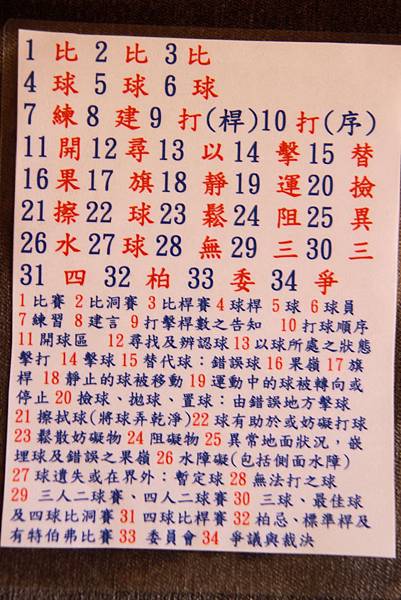 1 比 2 比 3 比
4 球 5 球 6 球
7 練 8 建 9 打(桿)10 打(序)
11 開 12 尋 13 以 14 擊 15 替
16 果 17 旗 18 靜 19 運 20 撿
21 擦 22 球 23 鬆 24 阻 25 異
26 水 27 球 28 無 29 三 30 三
31 四 32 柏 33 委 34 爭
1 比賽 2 比洞賽 3 比桿賽 4 球桿 5 球 6 球員
7 練習 8 建言 9 打擊桿數之告知 10 打球順序
11 開球區 12 尋找及辨認球 13 以球所處之狀態
擊打 14 擊球 15 替代球：錯誤球 16 果嶺 17 旗
桿 18 靜止的球被移動 19 運動中的球被轉向或
停止 20 撿球、拋球、置球：由錯誤地方擊球
21 擦拭球(將球弄乾淨)22 球有助於或妨礙打球
23 鬆散妨礙物 24 阻礙物 25 異常地面狀況，嵌
埋球及錯誤之果嶺 26 水障礙(包括側面水障)
27 球遺失或在界外：暫定球 28 無法打之球
29 三人二球賽、四人二球賽 30 三球、最佳球
及四球比洞賽 31 四球比桿賽 32 柏忌、標準桿及
有特伯弗比賽 33 委員會 34 爭議與裁決